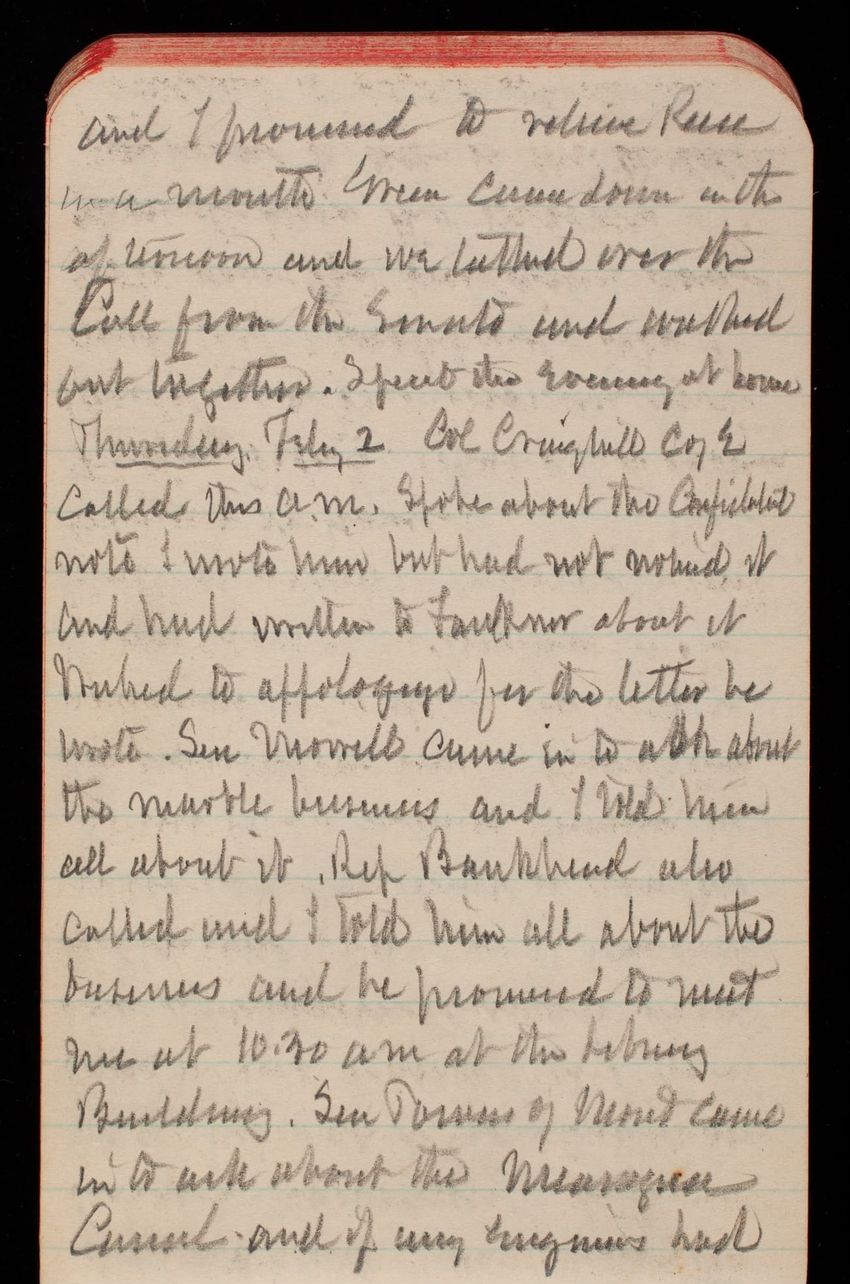 and I promised to relieve Reese
in a month Green came down in the
afternoon and we talked over the
Call from the Senate and walked
out together. Spent the Evening at home
Thursday, Feby 2 Col Craighill C of E
called this a.m. Spoke about the Confidetial
note I wrote him but had not noticed it
and had written to Faulkner about it
Wished to appologize for the letter he
wrote. Sen Morrell came in to ask about
the marble business and I told him
all about it, Rep Bankhead also
called and I told him all about the
business and he promised to meet
me at 10.30 am at the Library
Building. Sen Powers of Mont came
in to ask about the Nicaragua
Canal and if any Engineers had